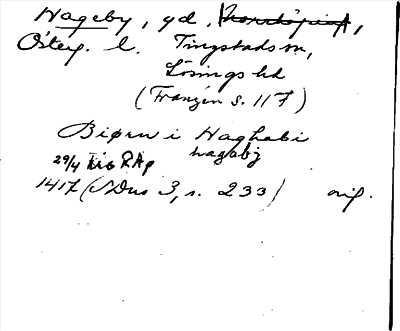 Hageby, gd, Norrköping,
Österg. l. Tingstads sn,
Lösings hd
(Franzén s. 117)
Biørn i Haghabi
hagabj
29/4 RAp
1417 (SDns 3, s. 233) orig.